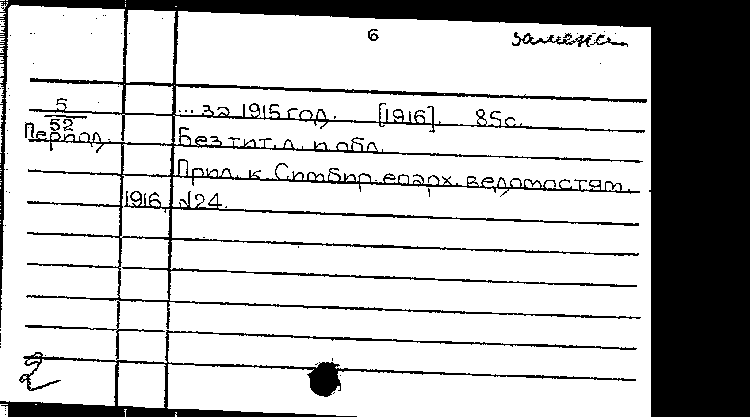 6 замена
5/52 ... за 1915 год. [1916]. 85с.
Период. Без тит. л. и обл.
Прил. к Симбир. епарх. ведомостям.
1916, №24.
2